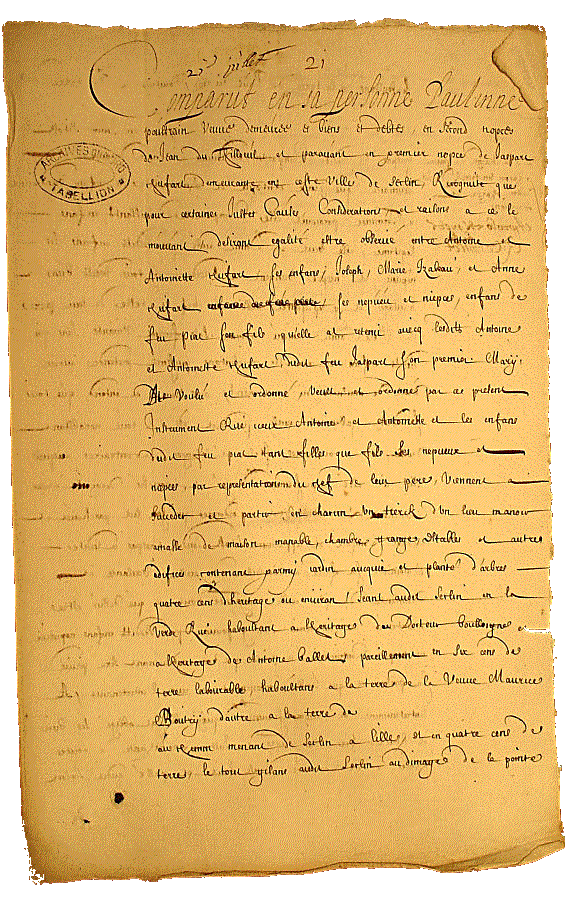 21 juillet 21
Comparut en sa personne Paulinne
poultrain veuve demeurée es biens et debtes, en second nopces
de Jean du et paravant en premier nopce de Jaspart
demeurante en ceste ville de Seclin, Recognute que
pour certaines Justes Causes Considerations et raisons a ce le
mouvant desirant egalité estre observé entre Antoine et
ARCHIVES DU NORD
TABELLION
Antoinette ses enfans, Joseph, Marie, Izabeau, et Anne
ses nepveux et niepces, enfans de
feu piat son fils quelle at retenu avecq lesdits Antoine
et Antoinette dudit feu Jaspart son premier Mary,
At Voulu et ordonné, veult et ordonne par ce present
Instrument Que iceux Antoine et Antoinette et les enfans
dudit feu piat tant filles que fils ses nepveux et
niepces, par representation du chef de leur pere, viennent a
succeder et partir en chacun un tierch d'un lieu manoir
amassé de maison manable, chambre, grange, estables et autres
edifices contenant parmy jardin et planté d'arbres
quatre cens d'heritage ou environ, seant audit Seclin en la
Verde Rue, haboultant a l'heritage du Docteur Boullongne
a l'heritage de Antoine ballet, pareillement en six cens de
terre labourable haboultans a la terre de la Veuve Maurice
Boutry d'autre a la terre de
au chemin menant de Seclin a lille, et en quatre cens de
terre, le tout gisans audit Seclin au dimage de la pointe